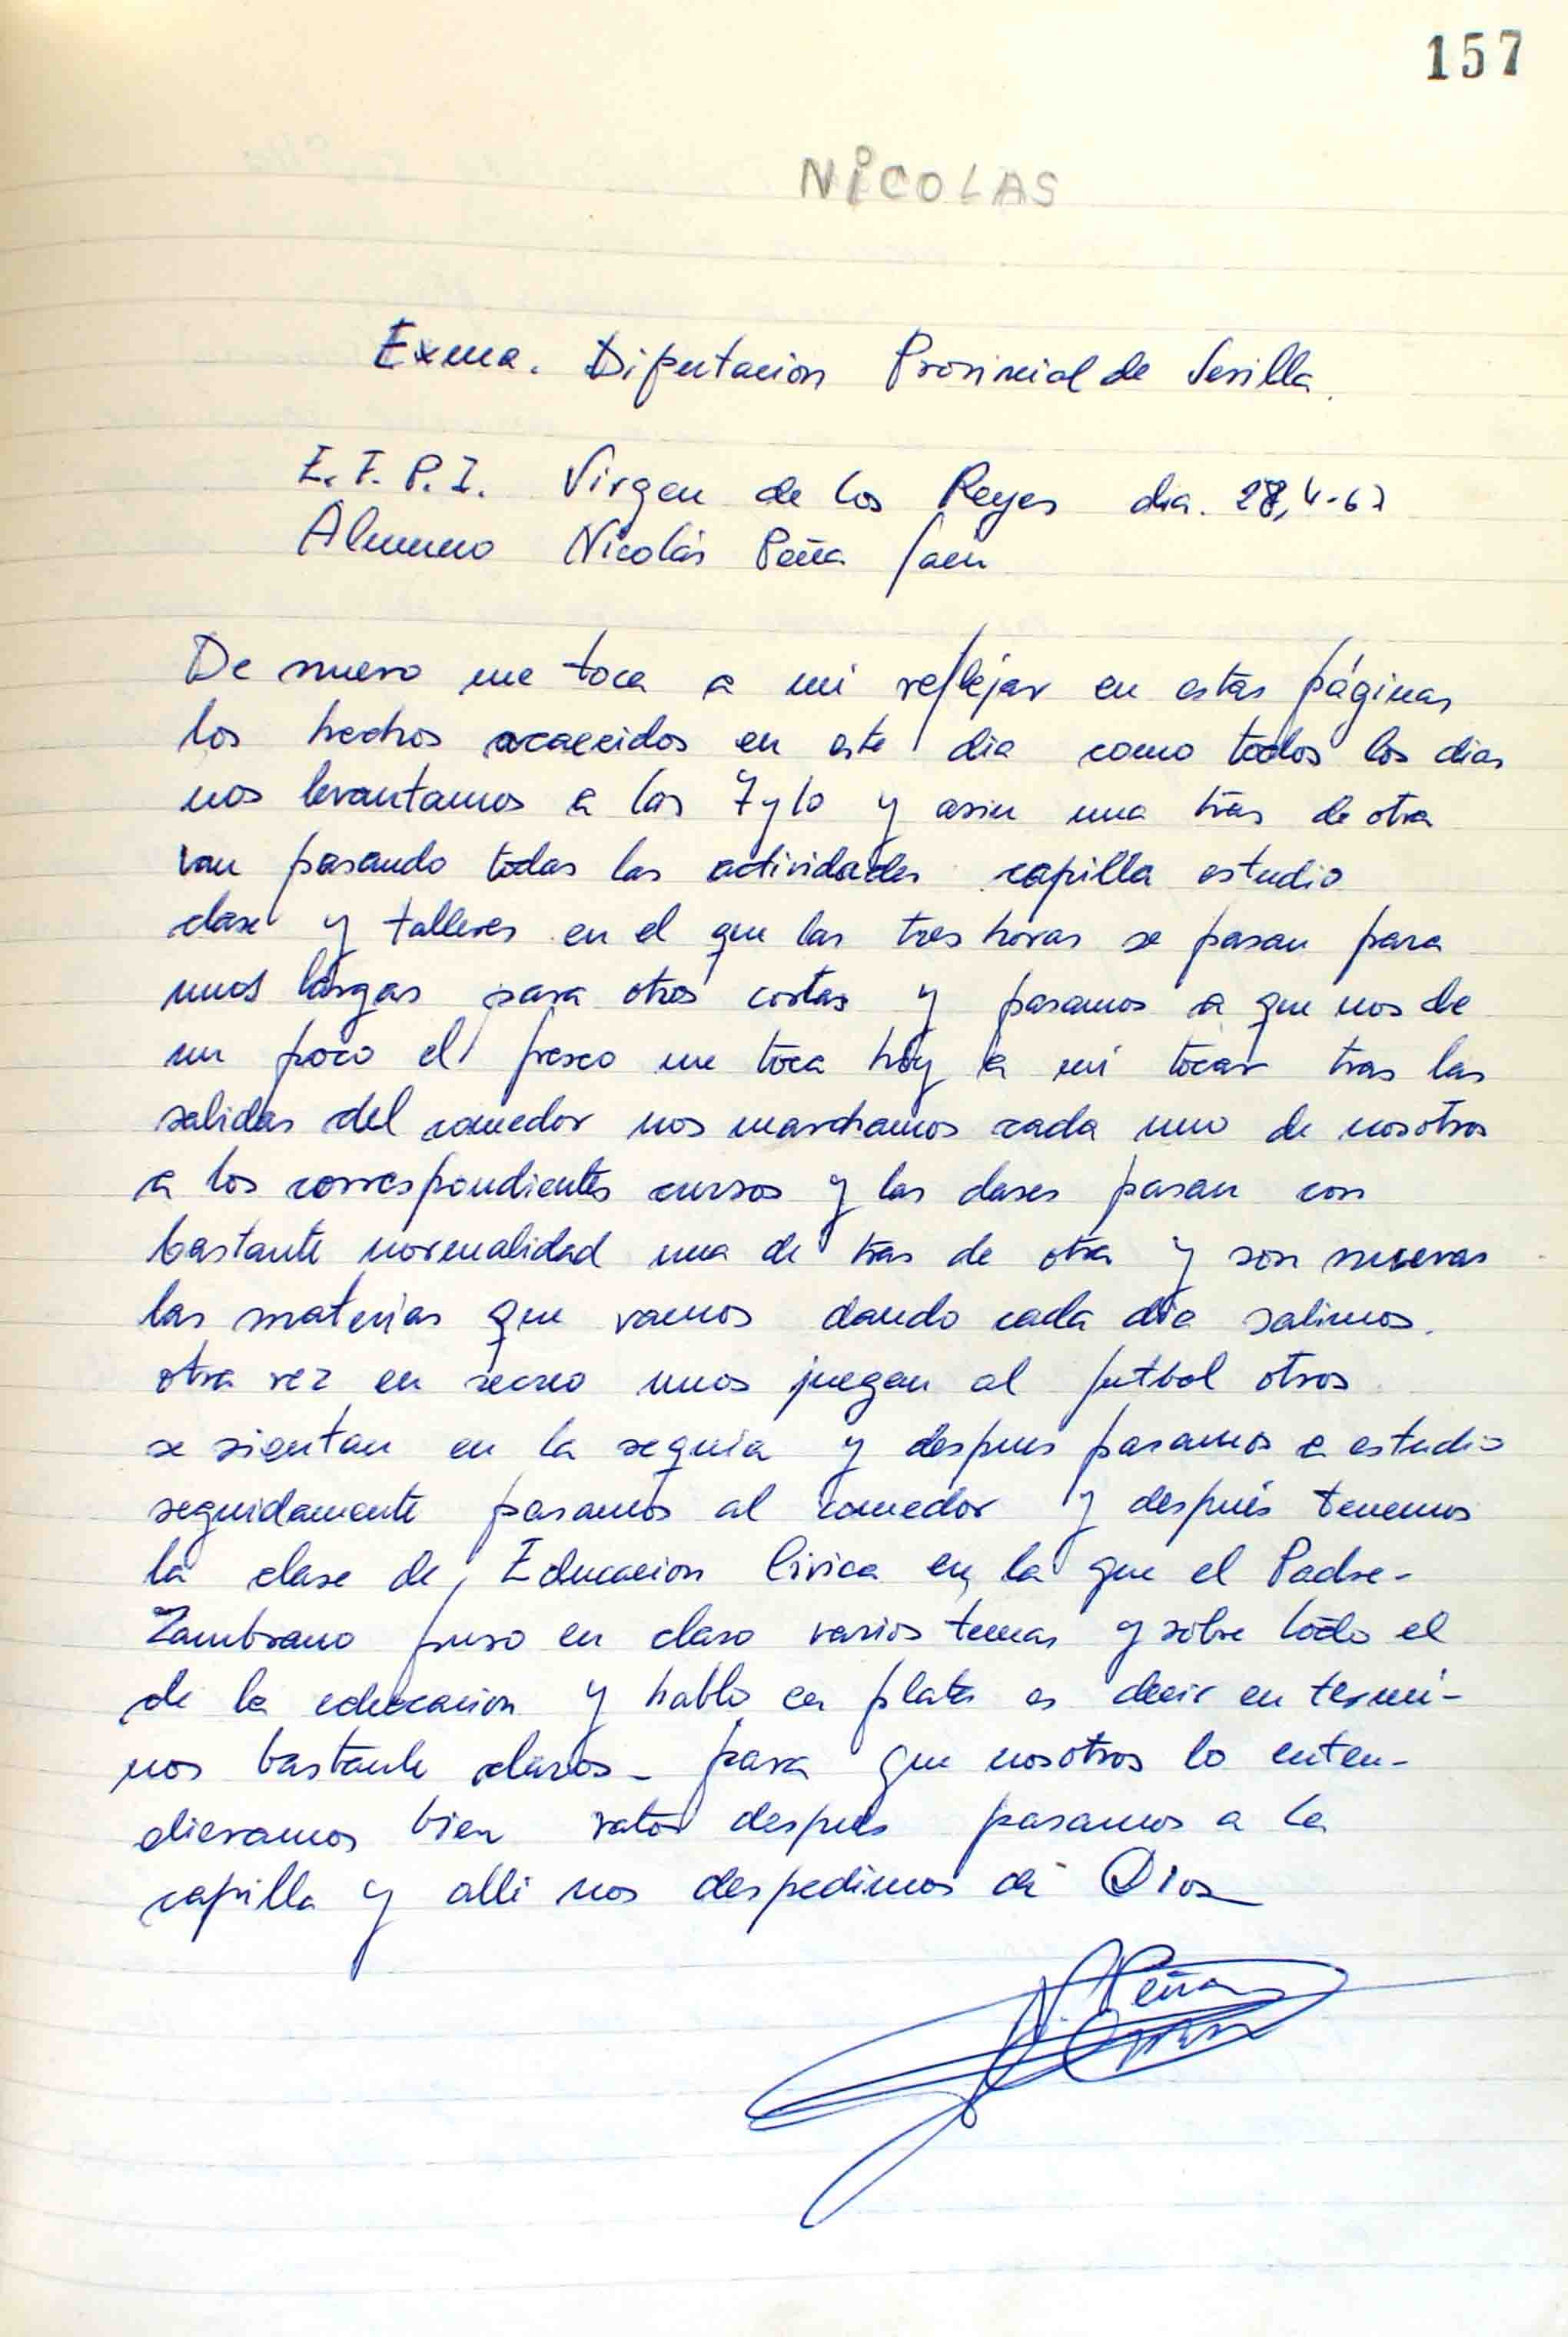 157
NiCOLAS
Exma. Diputacion Provincial de Sevilla.
E.F.P.I. Virgen de los Reyes dia. 28,4-67
Alumno Nicolás Peña Saen
De nuevo me toca a mi reflejar en estas páginas
los hechos acaecidos en este dia como todos los dias
nos levantamos a las 7 y 10 y asin una tras de otra
van pasando todas las actividades capilla estudio
clase y talleres en el que las tres horas se pasan para
unos largas para otros cortas y pasamos a que nos de
un poco el fresco me toca hoy a mi tocar tras las
salidas del comedor nos marchamos cada uno de nosotros
a los correspondientes cursos y las clases pasan con
bastante normalidad una de tras de otra y son nuevas
las materias que vamos dando cada dia salimos.
otra vez en recreo unos juegan al futbol otros
se sientan en la seguia y despues pasamos a estudio
seguidamente pasamos al comedor y después tenemos
la clase de Educacion Civica en la que el Padre-
Zambrano puso en claro varios temas y sobre todo el
de la educacion y hablo en plata es decir en termi-
nos bastante claros- para que nosotros lo enten-
dieramos bien ratos despues pasamos a la
capilla y alli nos despedimos de Dios
N. Peña